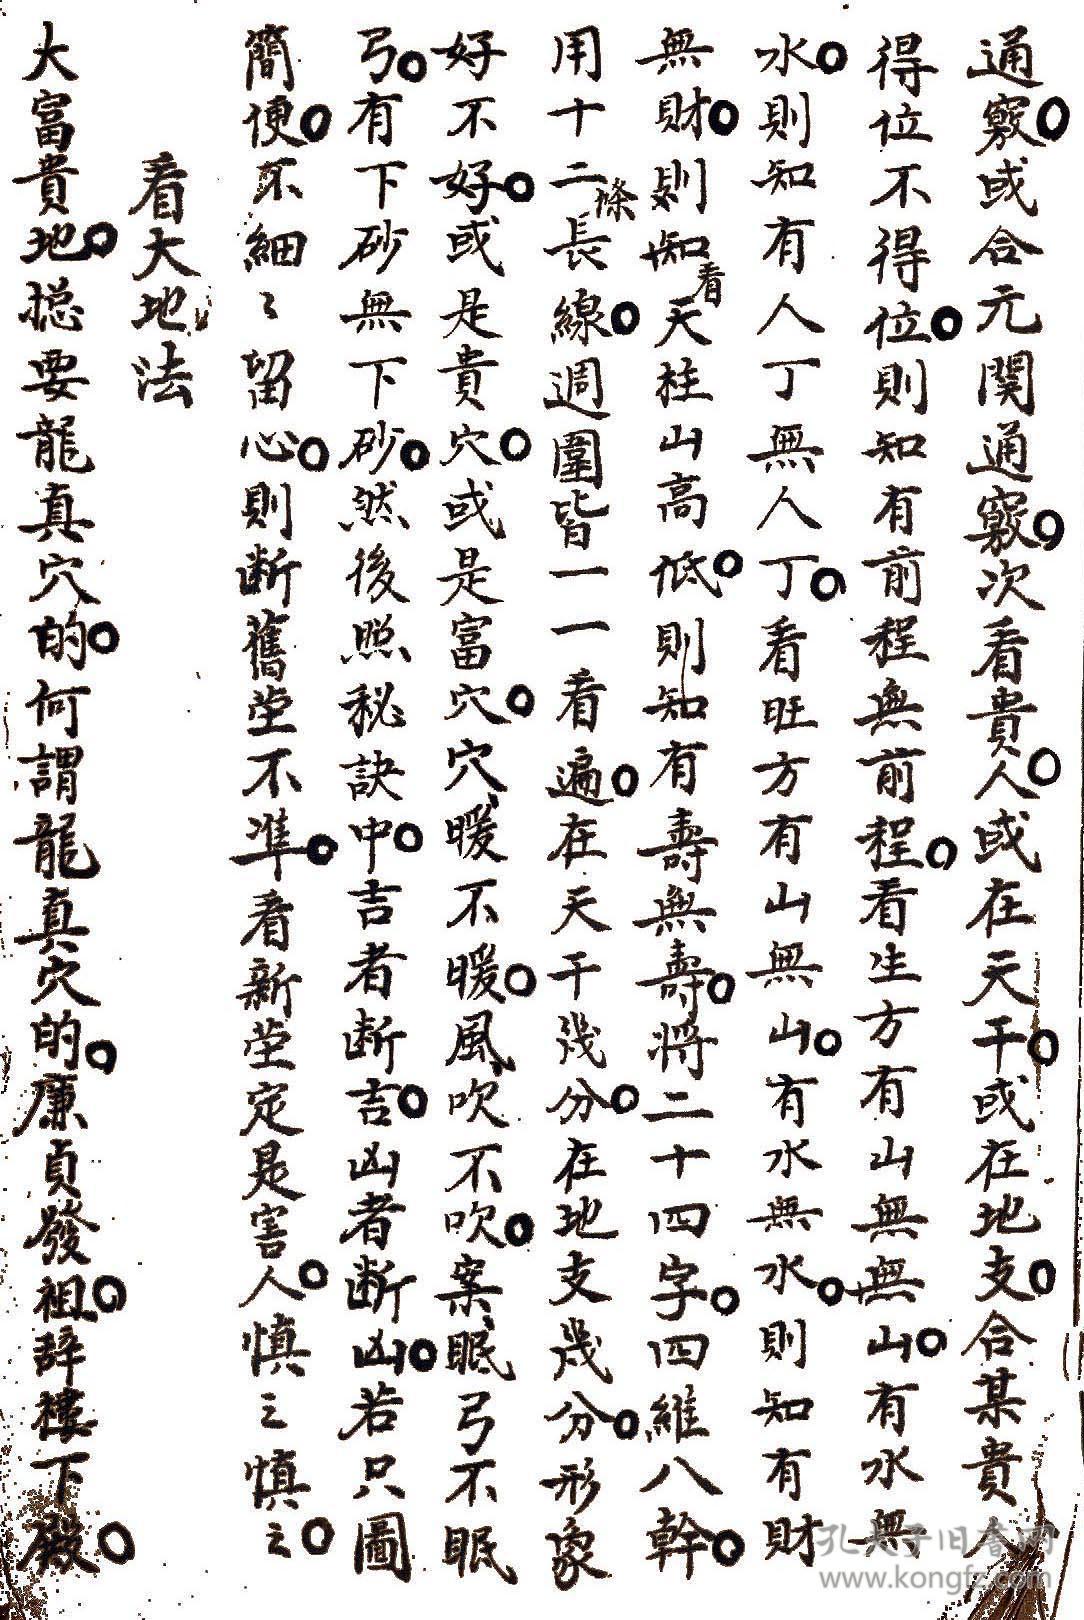 通竅或合元関通竅次看貴人或在天干或在地支合某貴人
得位不得位則知有前程無前程看生方有山無無山有水無
水則知有人丁無人丁看旺方有山無山有水無水則知有財
無財則知看天柱山高低則知有壽無壽將二十四字四維八幹
用十二條長線週圍皆一一看遍在天干幾分在地支幾分形象
好不好或是貴穴或是富穴穴暖不暖風吹不吹案眠弓不眠
弓有下砂無下砂然後照秘訣中吉者断吉凶者断凶若只圖
簡便不細〻留心則断舊塋不準看新塋定是害人慎之慎之
看大地法
大富貴地捴要龍真穴的何謂龍真穴的廉貞發祖辞樓下殿
孔夫子旧书网
www.kongfz.com